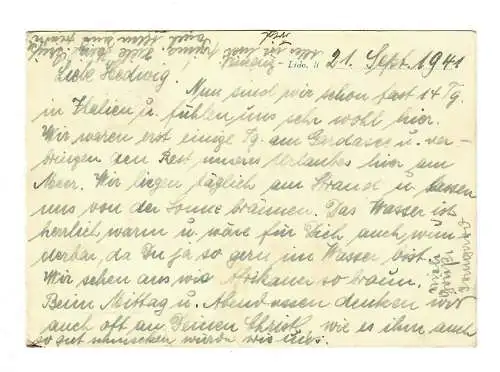 Venedig - Lido, d. 21. Sept. 1941
Liebe Hedwig!
Nun sind wir schon fast 14 Tg.
in Italien u. fühlen uns sehr wohl hier.
Wir waren erst einige Tg. am Gardasee u. ver-
bringen den Rest unseres Urlaubes hier am
Meer. Wir liegen täglich am Strande u. lassen
uns von der Sonne bräunen. Das Wasser ist
herrlich warm u. wäre für Dich, auch wun-
derbar, da Du ja so gern im Wasser bist.
Wir sehen aus wie Afrikaner so braun.
Beim Mittag u. Abendessen denken wir
auch oft an Deinen Christl, wie es ihm auch
so gut schmecken würde wie uns.